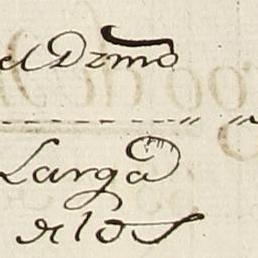 el Dzmo
Larga
de los